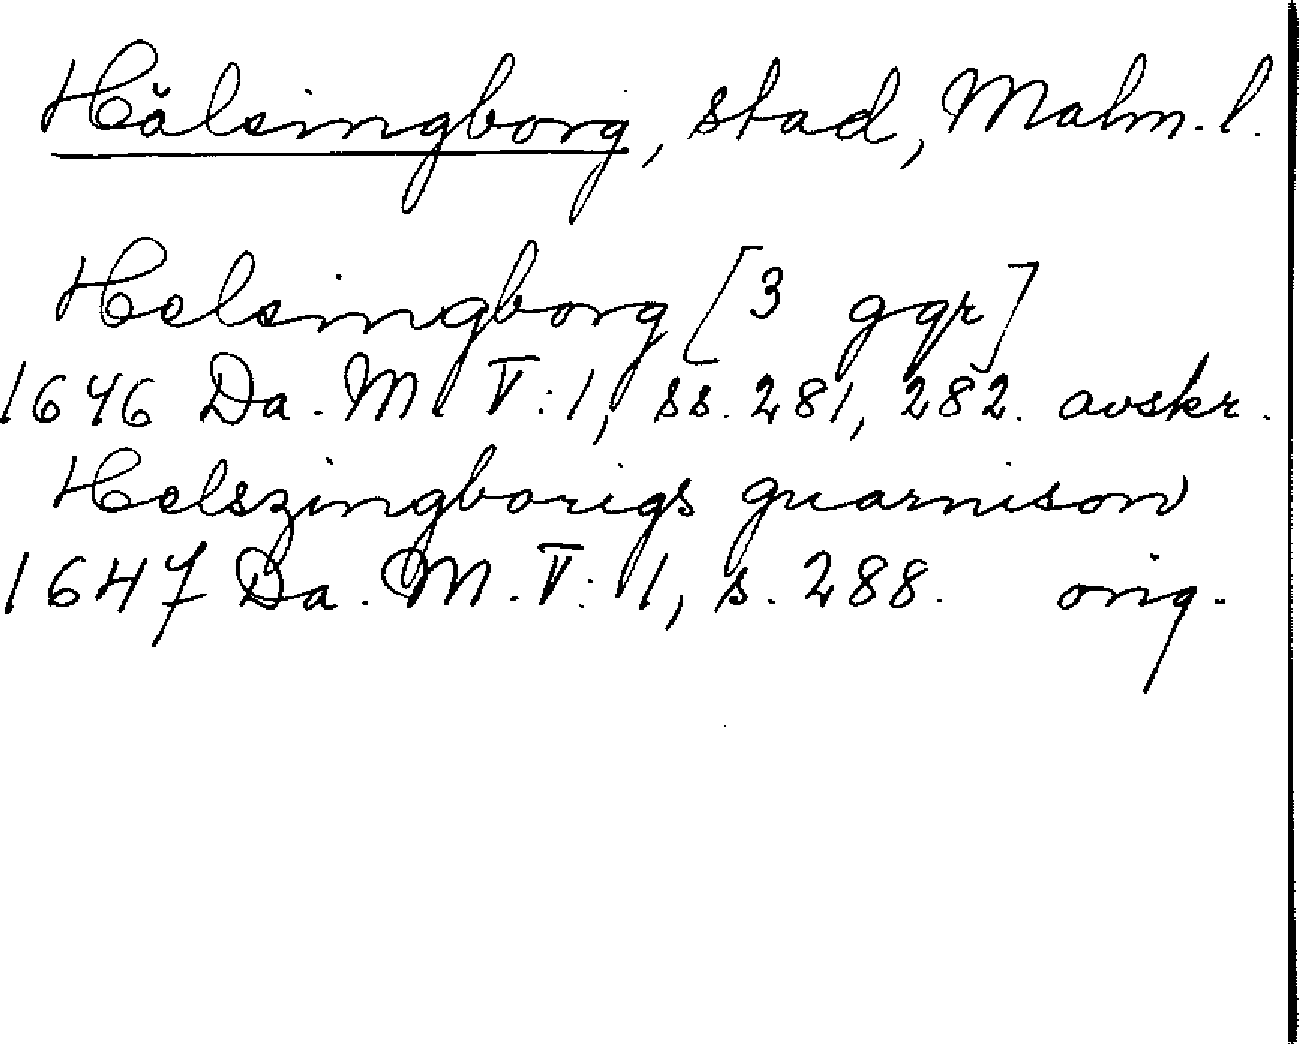 Hälsingborg, stad, Malm. l.
Helsingborg [3 ggr]
1646 Da. M. V: 1, ss. 281, 282. avskr.
Helszingborigs guarnison
1647 Da. M. V: 1, s. 288. orig.